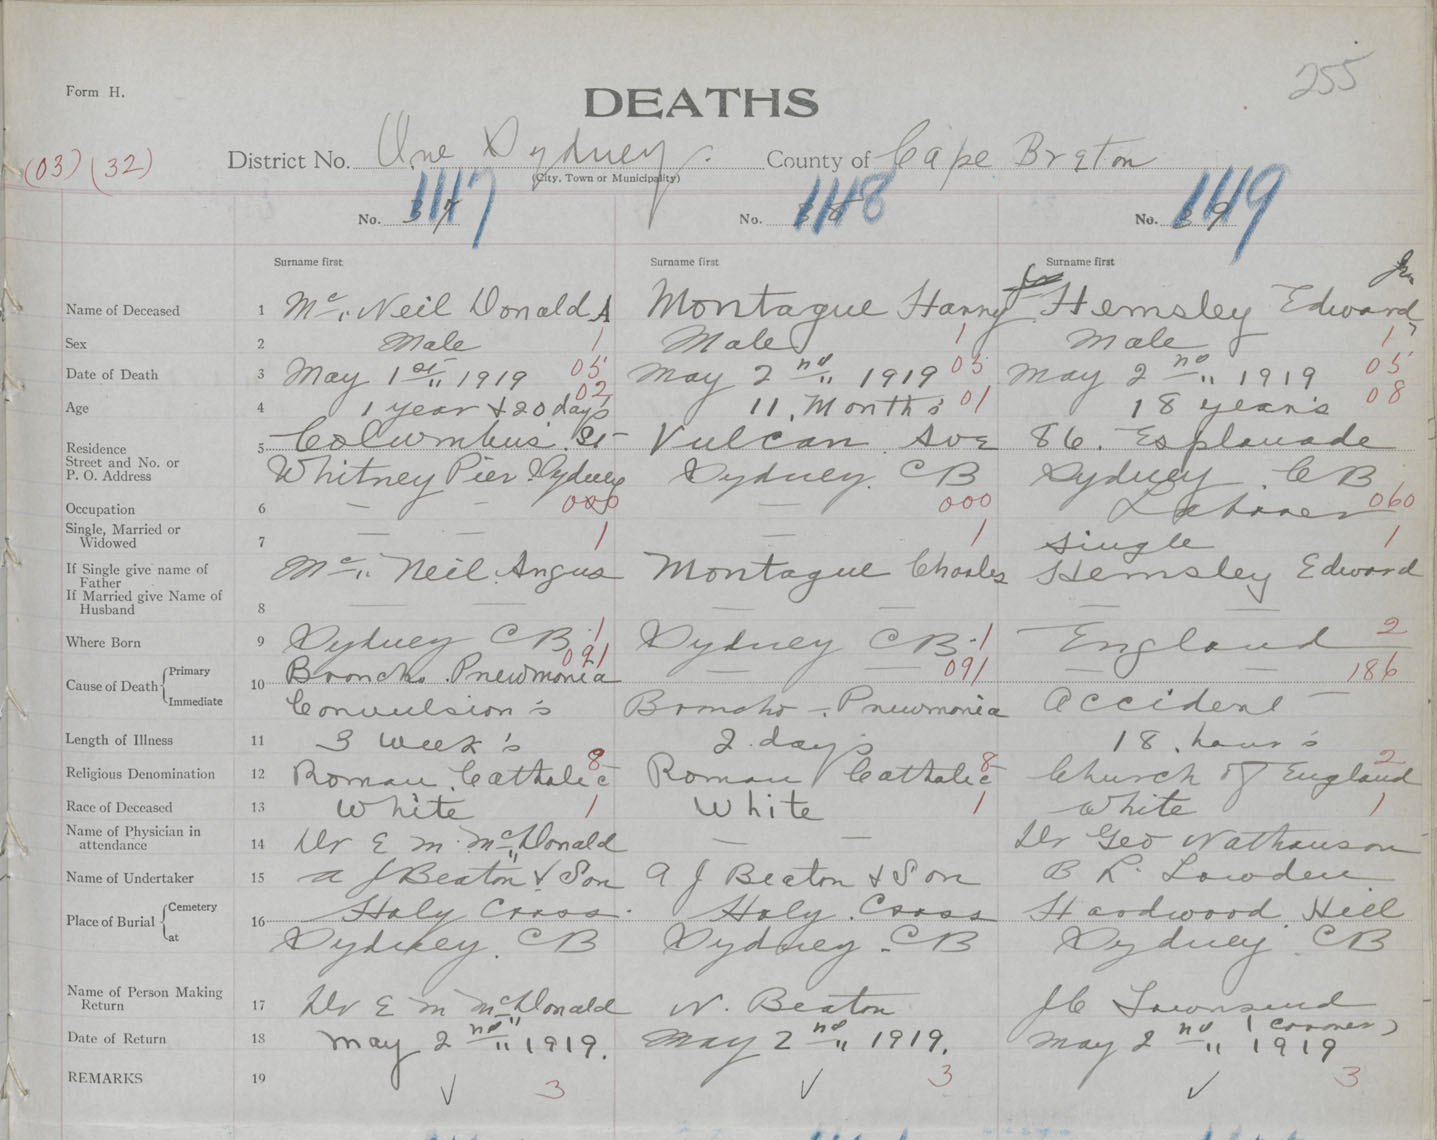 255
Form H.
DEATHS
(03) (32) District No. One Sydney. County of Cape Breton
(City, Town or Municipality)
1117 1118 1119
No. 37 No. 38 No. 39
Surname first Surname first Surname first Jr.
Name of Deceased 1 Mc Neil Donald A Montague Harry Hemsley Edward
Sex 2 Male 1 Male 1 Male 1
Date of Death 3 May 1st 1919 05 May 2nd 1919 05 May 2nd 1919 05
Age 4 1 year & 20 day's 02 11. Month's 01 18 year's 08
Residence 5 Columbus. St Vulcan Ave 86. Esplanade
Street and No. or
P. O. Address Whitney Pier. Sydney Sydney. CB Sydney. CB
Occupation 6 — — 000 — 000 Laborer 060
Single, Married or
Widowed 7 — — 1 — 1 Single 1
If Single give name of
Father Mc Neil. Angus Montague Charles Hemsley Edward
If Married give Name of
Husband 8 — — — — — —
Where Born 9 Sydney CB. 1 Sydney CB. 1 England 2
Cause of Death Primary 10 Broncho. Pneumonia 091 — — 091 — — 186
Immediate Convulsion's Broncho - Pneumonia Accident —
Length of Illness 11 3 week's 2. day's 18. hour's
Religious Denomination 12 Roman. Catholic 8 Roman Catholic 8 Church of England 2
Race of Deceased 13 White 1 White 1 White 1
Name of Physician in
attendance 14 Dr E. M. McDonald — — Dr Geo Nathanson
Name of Undertaker 15 A J Beaton & Son A J Beaton & Son B L. Lowden
Place of Burial Cemetery 16 Holy Cross. Holy. Cross Hardwood Hill
at Sydney. CB Sydney. CB Sydney. CB
Name of Person Making
Return 17 Dr E M McDonald N. Beaton J C Townsend
(Coroner)
Date of Return 18 May 2nd 1919. May 2nd 1919. May 2nd 1919
REMARKS 19 ✓ 3 ✓ 3 ✓ 3